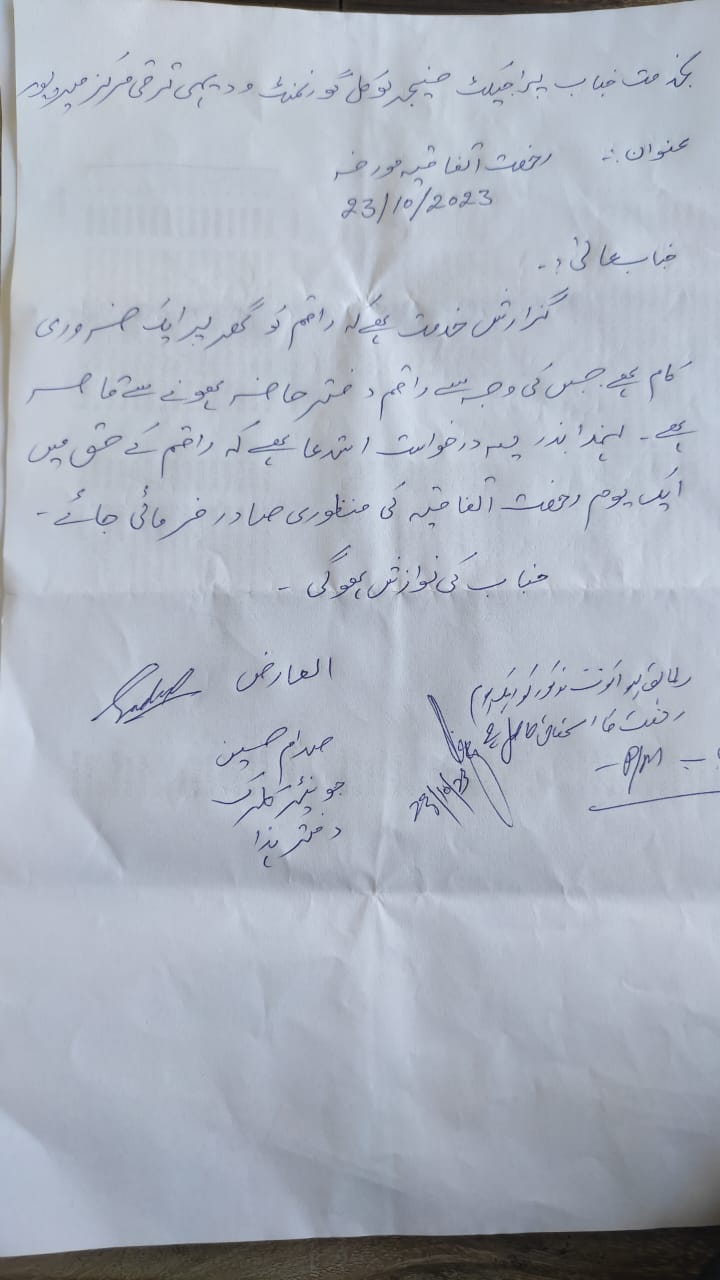 بخدمت جناب پراجیکٹ منیجر لوکل گورنمنٹ و دیہی ترقی مرکز میرپور
عنوان:۔ رخصت اتفاقیہ مورخہ
23/10/2023
جناب عالی!۔
گزارش خدمت ہیکہ راقم کو گھر پر ایک ضروری
کام ہے جس کی وجہ سے راقم دفتر حاضر ہونے سے قاصر
ہے۔ لہذا بذریعہ درخواست استدعا ہیکہ راقم کے حق میں
ایک یوم رخصت اتفاقیہ کی منظوری صادر فرمائی جائے۔
جناب کی نوازش ہوگی۔
العارض
صدام حسین
جونیئر کلرک
دفتر ہذا
مطابق لیو اکونٹ مذکور کو ایک یوم
رخصت کا استحقاق حاصل ہے
23/10/23
P/M